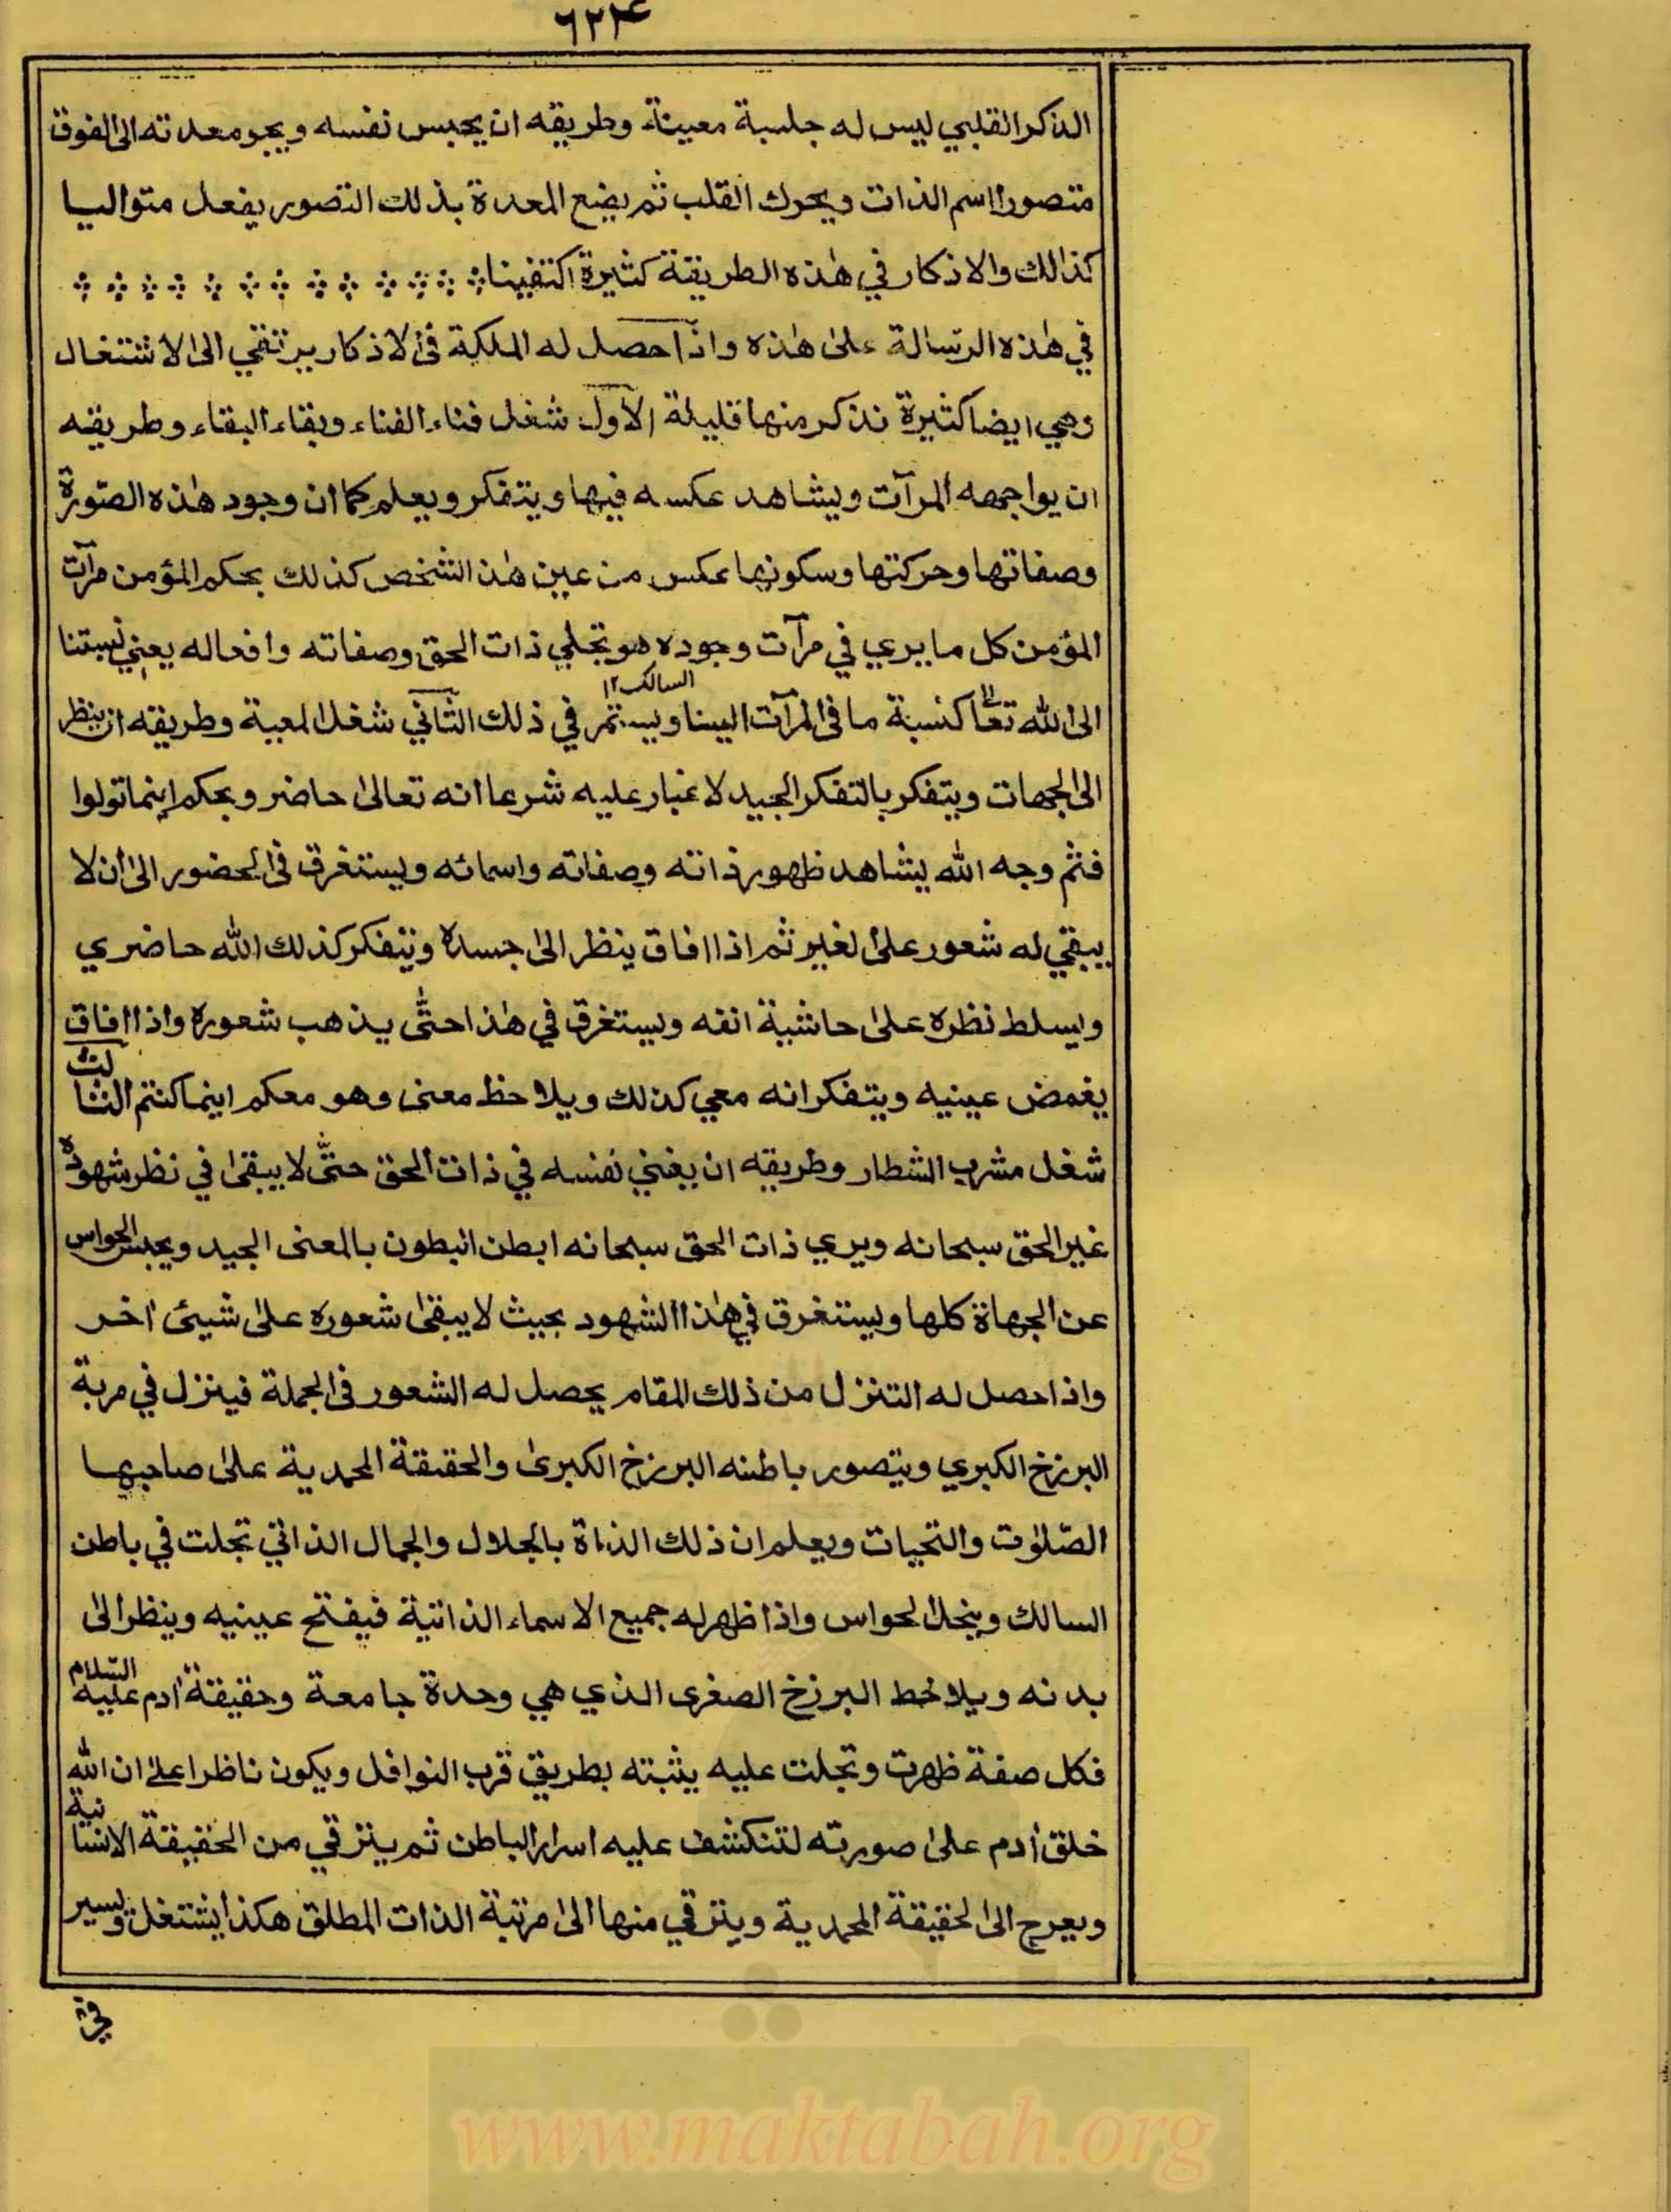 ٦٢٤
الذكر القلبي ليس له جلسة معينة وطريقه ان يحبس نفسه ويجر معدته الى الفوق
متصورا اسم الذات ويحرك القلب ثم يضع المعدة بذلك التصور يفعل متواليا
كذالك والاذكار في هٰذه الطريقة كثيرة اكتفينا
في هٰذه الرسالة علىٰ هٰذه واذا حصل له الملكة في الاذكار يرتقي الى الاشتغال
وهي ايضا كثيرة نذكر منها قليلة الاول شغل فناء الفناء وبقاء البقاء وطريقه
ان يواجهه المرآت ويشاهد عكسه فيها ويتفكر ويعلم كما ان وجود هٰذه الصورة
وصفاتها وحركتها وسكونها عكس من عين هٰذا الشخص كذلك بحكم المؤمن مرآت
المؤمن كل ما يري في مرآت وجوده هو تجلي ذات الحق وصفاته وافعاله يعني نسبتنا
الى الله تعالى كنسبة ما في المرآت الينا ويستمر السالك١٢ في ذلك الثاني شغل المعية وطريقه ان ينظر
الى الجهات ويتفكر بالتفكر الجيد لا غبار عليه شرعا انه تعالىٰ حاضر وبحكم اينما تولوا
فثم وجه الله يشاهد ظهور ذاته وصفاته واسمائه ويستغرق في الحضور الىٰ ان لا
يبقي له شعور على الغير ثم اذا افاق ينظر الىٰ جسده ويتفكر كذلك الله حاضري
ويسلط نظره علىٰ حاشية انفه ويستغرق في هٰذا حتّٰى يذهب شعوره واذا افاق
يغمض عينيه ويتفكر انه معي كذلك ويلاحظ معنى وهو معكم اينما كنتم الثالث
شغل مشرب الشطار وطريقه ان يفني نفسه في ذات الحق حتّٰى لا يبقىٰ في نظر شهوده
غير الحق سبحانه ويري ذات الحق سبحانه ابطن البطون بالمعنى الجيد ويحبس الحواس
عن الجهاة كلها ويستغرق في هٰذا الشهود بحيث لا يبقىٰ شعوره علىٰ شيئ اخر
واذا حصل له التنزل من ذلك المقام يحصل له الشعور في الجملة فينزل في مربة
البرزخ الكبري ويتصور باطنه البرزخ الكبرىٰ والحقيقة المحمدية علىٰ صاحبها
الصّلوٰت والتحيات ويعلم ان ذلك الذاة بالجلال والجمال الذاتي تجلت في باطن
السالك وينحل الحواس واذا ظهر له جميع الاسماء الذاتية فيفتح عينيه وينظر الىٰ
بدنه ويلاحظ البرزخ الصغرى الذي هي وحدة جامعة وحقيقة اٰدم عليه السلام
فكل صفة ظهرت وتجلت عليه يثبته بطريق قرب النوافل ويكون ناظرا علىٰ ان الله
خلق اٰدم علىٰ صورته لتنكشف عليه اسرار الباطن ثم يترقي من الحقيقة الانسانية
ويعرج الى الحقيقة المحمدية ويترقي منها الىٰ مرتبة الذات المطلق هكذا يشتغل ويسير
في
www.maktabah.org